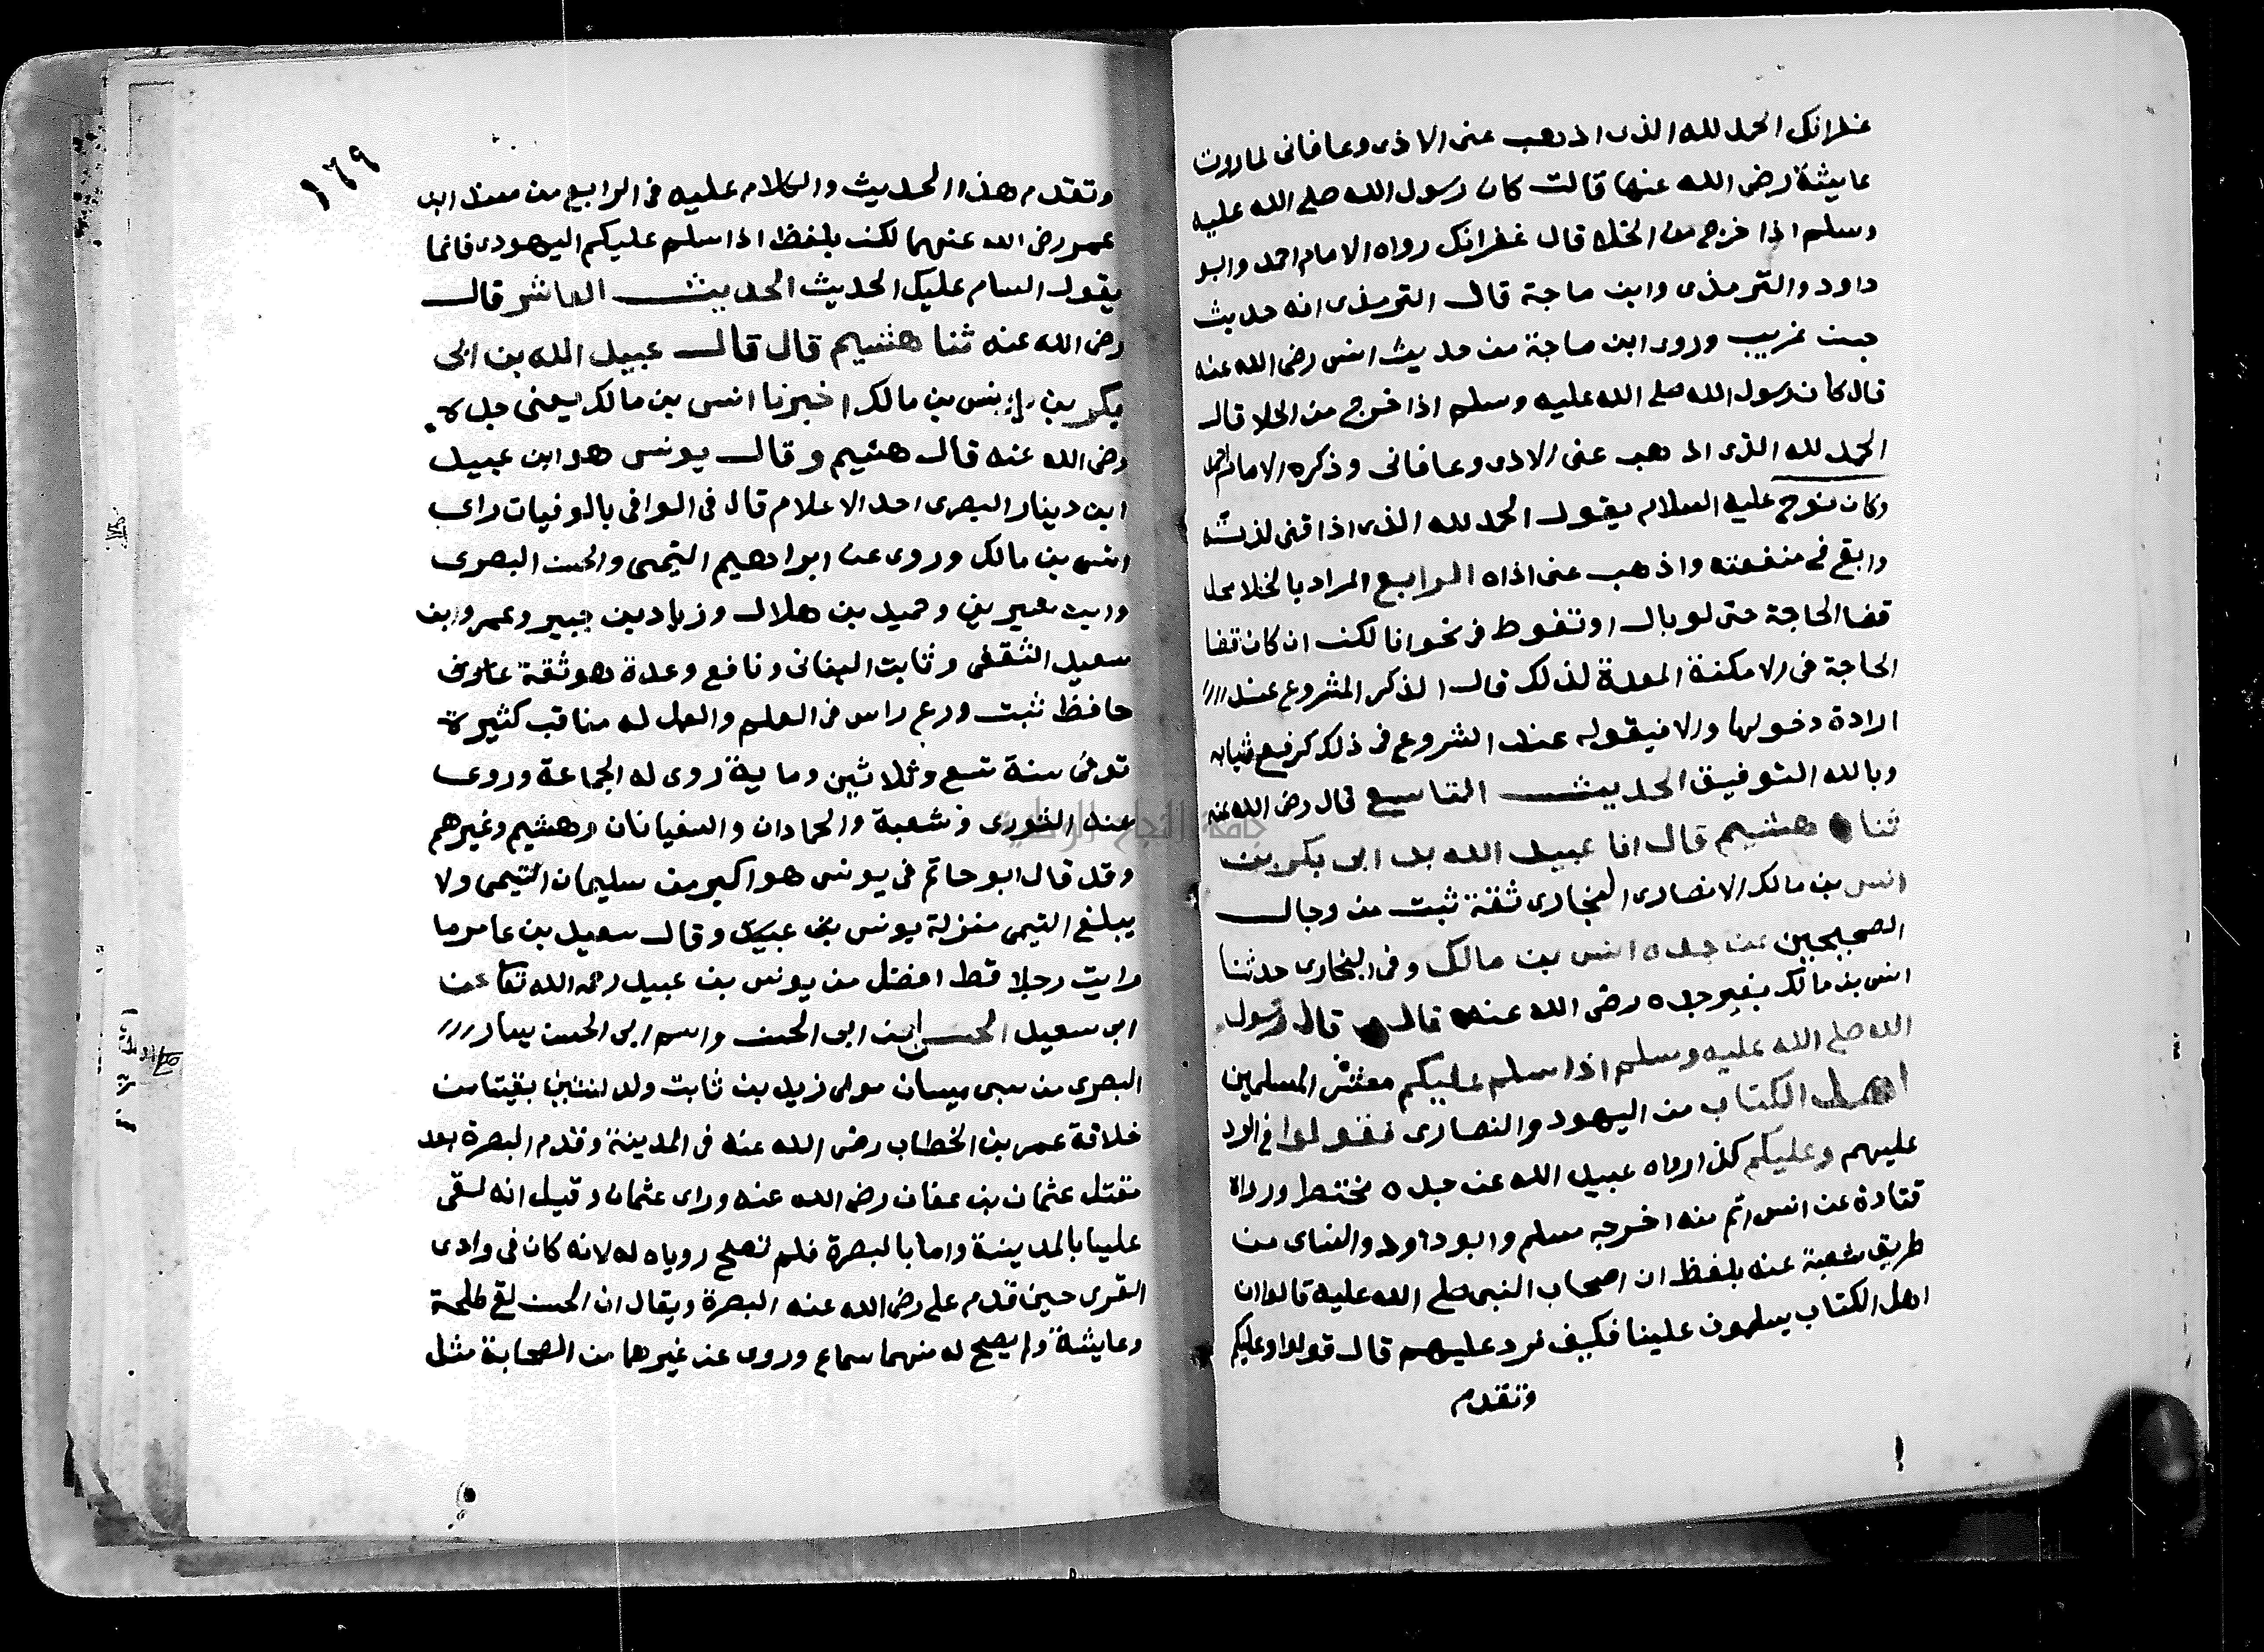 غفرانك الحمد لله الذى اذهب عنى الاذى وعافانى لما روت
عايشة رضى الله عنها قالت كان رسول الله صلى الله عليه
وسلم اذا خرج من الخلا قال غفرانك رواه الامام احمد وابو
داود والترمذى وابن ماجة قال الترمذى انه حديث
حسن غريب وروى ابن ماجة من حديث انس رضى الله عنه
قال كان رسول الله صلى الله عليه وسلم اذا خرج من الخلا قال
الحمد لله الذى اذهب عنى الاذى وعافانى وذكره الامام احمد
وكان نوح عليه السلام يقول الحمد لله الذى اذاقنى لذته
وابقى فى منفعته واذهب عنى اذاه الرابع المراد بالخلا محل
قضا الحاجة حتى لو بال او تغوط فى نحو انا لكن ان كان قضا
الحاجة فى الامكنة المعدة لذلك قال الذكر المشروع عند
ارادة دخولها والا فيقوله عند الشروع فى ذلك كرفع ثيابه
وبالله التوفيق الحديث التاسع قال رضى الله عنه
ثنا هشيم قال انا عبيد الله بن ابى بكر بن
انس بن مالك الانصارى النجارى ثقة ثبت من رجال
الصحيحين عن جده انس بن مالك وفى البخارى حدثنا
انس بن مالك يعنى جده رضى الله عنه قال قال رسول
الله صلى الله عليه وسلم اذا سلم عليكم معشر المسلمين
اهل الكتاب من اليهود والنصارى فقولوا فى الرد
عليهم وعليكم كذا رواه عبيد الله عن جده مختصرا ورواه
قتادة عن انس اتم منه اخرجه مسلم وابو داود والنساى من
طريق شعبة عنه بلفظ ان اصحاب النبى صلى الله عليه قالوا ان
اهل الكتاب يسلمون علينا فكيف نرد عليهم قال قولوا وعليكم
وتقدم
١٦٩
وتقدم هذا الحديث والكلام عليه فى الرابع من مسند ابن
عمر رضى الله عنهما لكن بلفظ اذا سلم عليكم اليهودى فانما
يقول السام عليك الحديث الحديث العاشر قال
رضى الله عنه ثنا هشيم قال قال عبيد الله بن ابى
بكر بن انس بن مالك اخبرنا انس بن مالك يعنى جده
رضى الله عنه قال هشيم وقال يونس هو ابن عبيد
ابن دينار البصرى احد الاعلام قال فى الوافى بالوفيات راى
انس بن مالك وروى عن ابراهيم التيمى والحسن البصرى
وابن سيرين وحميد بن هلال وزياد بن جبير وعمرو بن
سعيد الثقفى وثابت البنانى ونافع وعدة هو ثقة عارف
حافظ ثبت ورع راس فى العلم والعمل له مناقب كثيرة
توفى سنة تسع وثلاثين وماية روى له الجماعة وروى
عنه الثورى وشعبة والحمادان والسفيانان وهشيم وغيرهم
وقد قال ابو حاتم فى يونس هو اكبر من سليمان التيمى ولا
يبلغ التيمى منزلة يونس بن عبيد وقال سعيد بن عامر ما
رايت رجلا قط افضل من يونس بن عبيد رحمه الله تعا عن
ابى سعيد الحسن ابن ابى الحسن واسم ابى الحسن يسار
البصرى من سبى ميسان مولى زيد بن ثابت ولد لسنتين بقيتا من
خلافة عمر بن الخطاب رضى الله عنه فى المدينة وقدم البصرة بعد
مقتل عثمان بن عفان رضى الله عنه وراى عثمان وقيل انه لقى
عليا بالمدينة واما بالبصرة فلم تصح روياه له لانه كان فى وادى
القرى حين قدم على رضى الله عنه البصرة ويقال ان الحسن لقى طلحة
وعايشة ولم يصح له منهما سماع وروى عن غيرهما من الصحابة مثل